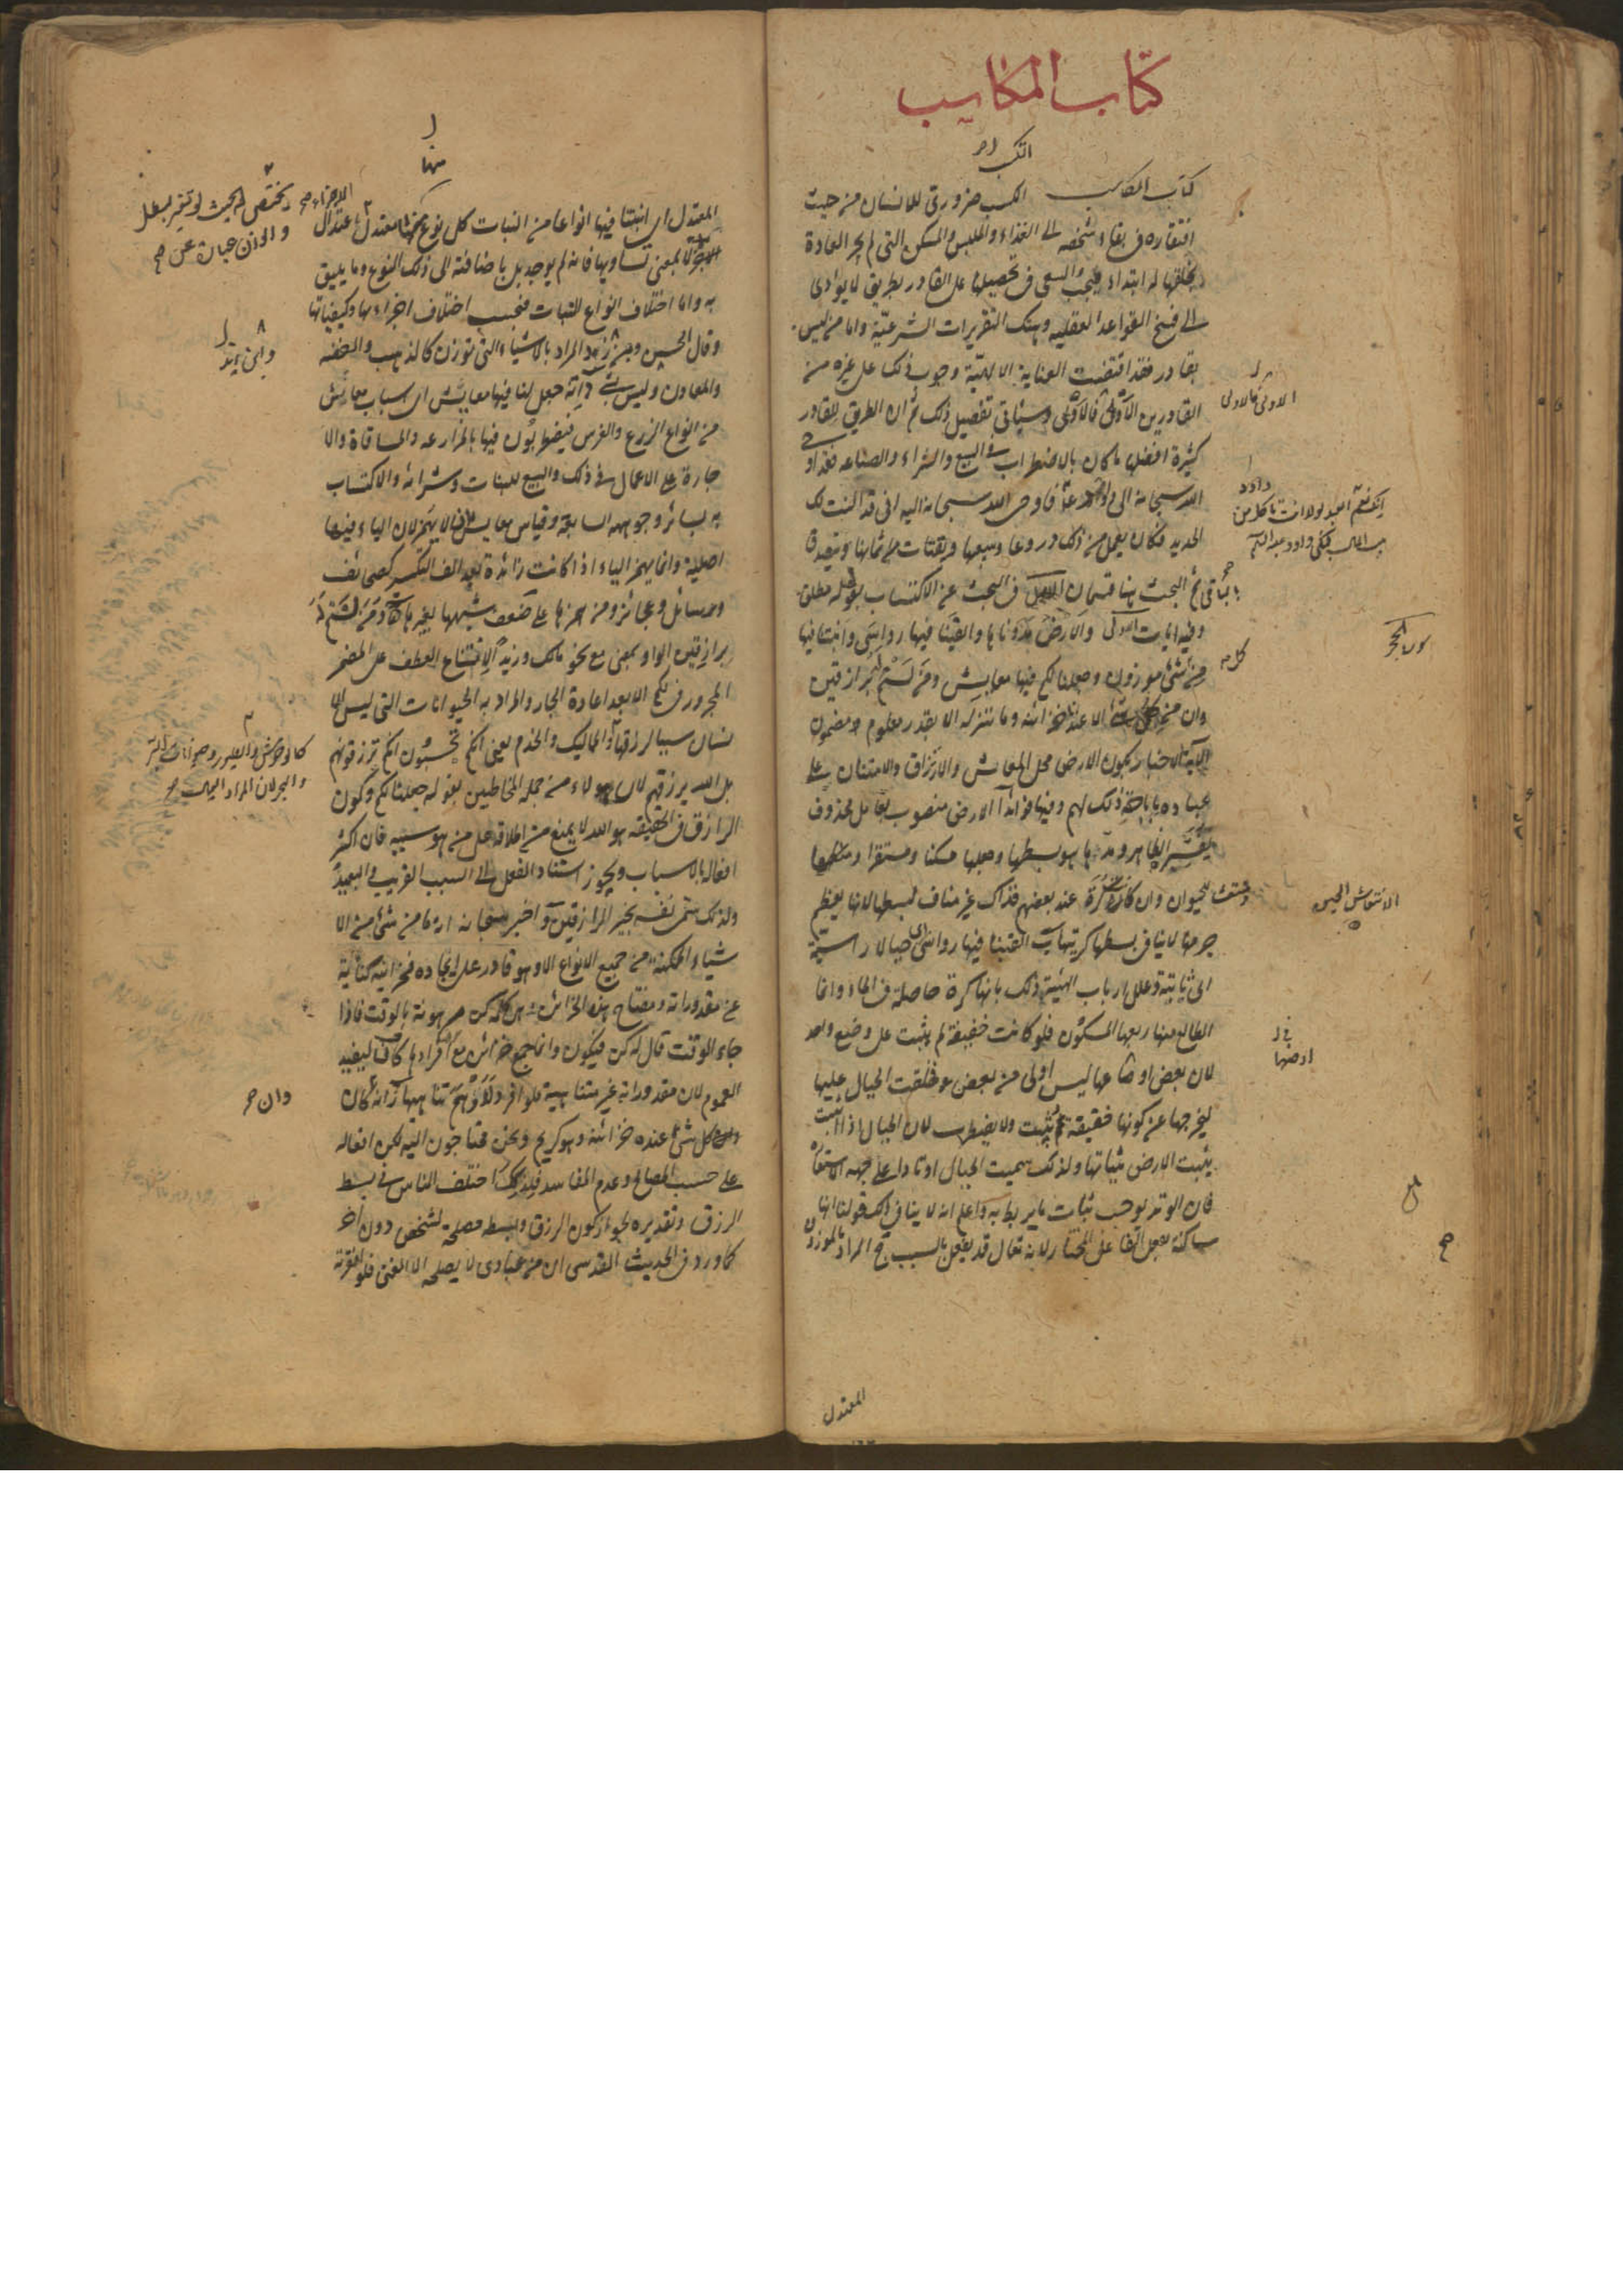 كتاب المكاسب
كتاب المكاسب الكسب ضروري للانسان من حيث
افتقاره في بقاء شخصه الى الغذاء والملبس والمسكن التي لم يجر العادة
بخلقها له ابتداء فيجب السعي في تحصيلها على القادر بطريق لا يؤدي
الى فسخ القواعد العقليه وهتك التقريرات الشرعيّة واما من ليس
بقادر فقد اقتضت العناية الالهيّة وجوب ذلك على غيره من
القادرين الأولى فالأولى وسيأتي تفصيل ذلك ثم ان الطريق للقادر
كثيرة افضلها ما كان بالاضطراب في البيع والشراء والصناعه
الله سبحانه الى فاوحى الله سبحانه اليه اني قد النت لك
الحديد فكان يعمل من ذلك دروعا ويبيعها ويقتات من اثمانها ويتصدق
بالباقي ثم البحث هنا قسمان الاول في البحث عن الاكتساب بقول مطلق
وفيه ايات الاولى والارض مددناها والقينا فيها رواسي وانبتنا فيها
من كل شئ موزون وجعلنا لكم فيها معايش ومن لستم له برازقين
وان من شئ الا عندنا خزائنه وما ننزله الا بقدر معلوم مضمون
الآية الاخبار بكون الارض محل المعايش والارتزاق والامتنان على
عباده باباحة ذلك لهم وفيها فوائد آ الارض منصوب بعامل محذوف
يفسّره الظاهر ومدّها هو بسطها وجعلها مسكنا ومستقرا
للحيوان وان كانت كرة عند بعضهم فذاك غير مناف لبسطها لانها لعظم
جرمها لا ينافي بسطها كريتها ب القينا فيها رواسي اي جبالا راسية
اي ثابتة وعلل ارباب الهيئة ذلك بانها كرة حاصلة في الماء وانما
الطالع منها ربعها المسكون فلو كانت خفيفة لم يثبت على وضع واحد
لان بعض اوضاعها ليس اولى من بعض فخلقت الجبال عليها
ليخرجها عن كونها خفيفة فتثبت ولا يضطرب لان الجبال
يثبت الارض بثباتها ولذلك سميت الجبال اوتادا على جهة الاستعا
فان الوتد يوجب ثبات ما يربط به واعلم انه لا ينافي ذلك قولنا انها
ساكنة بفعل الفاعل المختار لانه تعالى قد يفعل بالسبب ج المراد بالموزون
الاولى فالاولى
داود
انك نعم العبد لولا انك تاكل من
بيت المال فبكى داود عليه السلم
سورة الحجر
كل
المعتدل
منها
المعتدل اي انبتنا فيها انواعا من النبات كل نوع منها معتدل باعتدال
يختص به بحيث لو تغير لبطل
والوزن عبارة عن
لا بمعنى تساويها فانه لم يوجد بل باضافته الى ذلك النوع وما يليق
به واما اختلاف انواع النبات فبحسب اختلاف اجزاءها وكيفياتها
وقال الحسن وابن زيد المراد بالاشياء التي توزن كالذهب والفضه
وابن زيد
والمعادن وليس بشئ د انه جعل لنا فيها معايش اي اسباب معايش
من انواع الزرع والغرس فيضطربون فيها بالمزارعه والمساقاة والا
جارة على الاعمال في ذلك والبيع للنبات وشرائه والاكتساب
به بسائر وجوهه السابقة وقياس معايش ان لا يهمز لان الياء فيها
اصلية وانما يهمز الياء اذا كانت زائدة بعد الف التكسير كصحائف
ورسائل وعجائز ومن همزها على ضعف شبهها بغيرها ه ومن لستم له
برازقين الواو بمعنى مع نحو مالك وزيدا لامتناع العطف على المضمر
المجرور في لكم الا بعد اعادة الجار والمراد به الحيوانات التي ليس الا
نسان سببا لرزقها او المماليك والخدم يعني انكم تحسبون انكم ترزقونهم
كالوحوش والطيور وحيوانات البر
والبحر لان المراد
بل الله يرزقهم لان هولاء من جملة المخاطبين بقوله جعلنا لكم وكون
الرازق في الحقيقه هو الله لا يمنع من اطلاقه على من هو سببه فان اكثر
افعاله بالاسباب ويجوز اسناد الفعل الى السبب القريب والبعيد
ولذلك سمى نفسه بخير الرازقين و اخبر سبحانه انه ما من شئ من الا
شياء الممكنة من جميع الانواع الا وهو قادر على ايجاده فخزائنه كناية
عن مقدوراته ومفتاح هذه الخزائن هي كلمة كن مرهونة بالوقت فاذا
جاء الوقت قال له كن فيكون وانما جمع خزائن مع افرادها كاف ليفيد
العموم لان مقدوراته غير متناهية فلو افرد لاوهم تناهيها ز انه كان
وان
كل شئ عنده خزائنه وهو كريم ونحن محتاجون اليه لكن افعاله
على حسب المصالح وعدم المفاسد فلذلك اختلف الناس في بسط
الرزق وتقديره لجواز كون الرزق والبسط مصلحة لشخص دون اخر
كما ورد في الحديث القدسي ان من عبادي لا يصلحه الا الغنى فلو افقرته